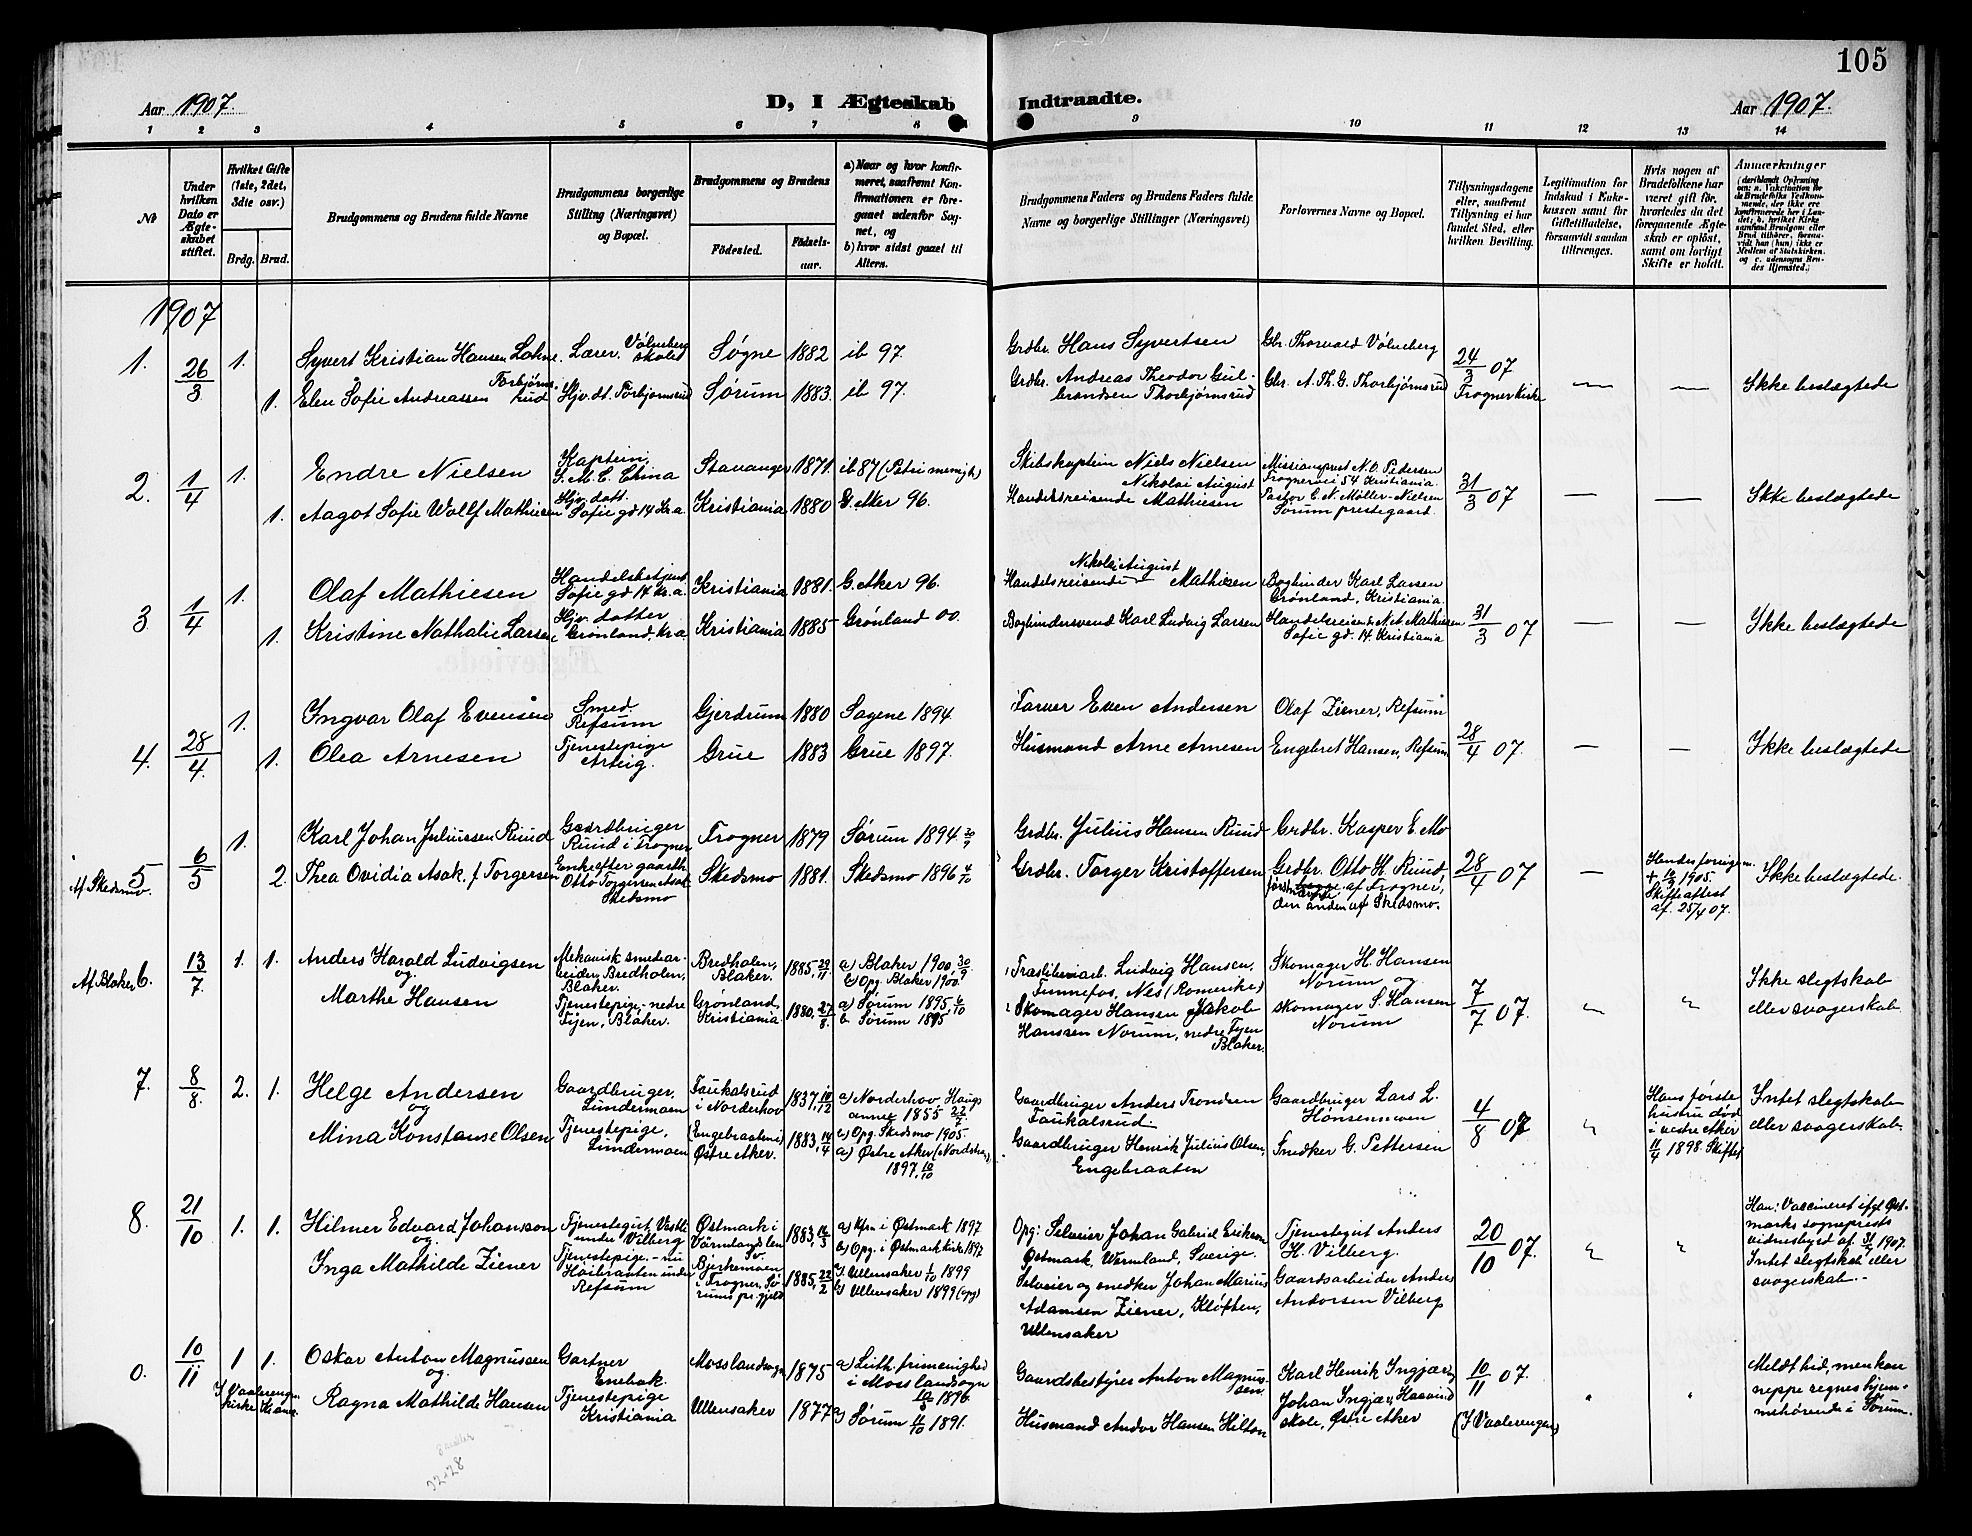 105
Aar 1907. D, I Ægteskab Indtraadte. Aar 1907.
1 2 3 4 5 6 7 8 9 10 11 12 13 14
№
Under hvilken Dato er Ægteskabet stiftet.
Hvilket Gifte (1ste, 2det, 3die osv.)
Brdg. Brud.
Brudgommens og Brudens fulde Navne
Brudgommens borgerlige Stilling (Næringsvei) og Bopæl.
Brudgommens og Brudens
Fødested. Fødselsaar.
a) Naar og hvor konfirmeret, saafremt Konfirmationen er foregaaet udenfor Sognet, og
b) hvor sidst gaaet til Alters.
Brudgommens Faders og Brudens Faders fulde Navne og borgerlige Stillinger (Næringsvei)
Forlovernes Navne og Bopæl.
Tillysningsdagene eller, saafremt Tillysning ei har fundet Sted, efter hvilken Bevilling.
Legitimation for Indskud i Enkekassen samt for Giftetilladelse, forsaavidt saadan tiltrænges.
Hvis nogen af Brudefolkene har været gift før, hvorledes da det foregaaende Ægteskab er opløst, samt om lovligt Skifte er holdt.
Anmærkninger
1907
1. 26/3 1. Syvert Kristian Hansen Lohne. Lærer, Vølneberg skole Søgne 1882 ib 97. Grdbr. Hans Syvertsen Gbr. Thorvald Vølneberg 24/3 07
1. Elen Sofie Andreassen Torbjørnsrud Hjv. dt. Torbjørnsrud Sørum 1883. ib 97. Grdbr. Andreas Theodor Gulbrandsen Thorbjørnsrud Gbr. A. Th. G. Thorbjørnsrud Frogner Kirke — — Ikke beslægtede
2. 1/4 1. Endre Nielsen Kaptein, I. M. C. China Stavanger 1871. ib 87 (Petri menigh) Skibskaptein Niels Nielsen Missionsprest N. O. Pedersen Frognervei 54 Kristiania. 31/3 07
1. Aagot Sofie Wolff Mathiesen Hjv. datt. Sofie gd 14 Kr.a. Kristiania 1880 G. Aker 96. Handelsreisende Nikolai August Mathiesen Pastor C. N. Møller-Nielsen Sørum prestegaard. — — Ikke beslægtede
3 1/4 1. Olaf Mathiesen Handelsbetjent Sofie gd 14 Kr.a. Kristiania 1881. G. Aker 96. Handelsreisende Nikolai August Mathiesen Bogbinder Karl Larsen Grønland, Kristiania.
1. Kristine Nathalie Larsen Hjv. datter Grønland Kr.a Kristiania 1885 Grønland 00. Bogbindersvend Karl Ludvig Larsen Handelsreisende Nik. Mathiesen Sofie gd. 14. Kristiania 31/3 07 — — Ikke beslægtede
4. 28/4. 1. Ingvar Olaf Evensen Smed. Refsum Gjerdrum 1880 Sagene 1894. Farver Even Andersen Olaf Ziener, Refsum
1. Olea Arnesen Tjenestepige Arteig. Grue 1883 Grue 1897. Husmand Arne Arnesen Engebret Hansen, Refsum 28/4 07. — — Ikke beslægtede
Af Skedsmo. 5 6/5 1. Karl Johan Juliussen Ruud Gaardbruger Ruud i Frogner Frogner 1879 Sørum 1894 Grdbr. Julius Hansen Ruud Grdbr. Kasper E. Mo
2. Thea Ovidia Asak. f. Torgersen Enke efter gaardb. Otto Torgersen Asak Skedsmo Skedsmo 1881. Skedsmo 1896 4/10 Grdbr. Torger Kristoffersen Grdbr. Otto H. Ruud, af Frogner, den anden af Skedsmo. 28/4 07 — Hendes forrige m. + 1905. Skifteattest af. 25/4 07. Ikke beslægtede.
Af Blaker 6. 13/7. 1. 1. Anders Harald Ludvigsen og Mekanisk smedearbeider, Bredholen, Blaker. Bredholen, Blaker. 1885 29/11. a) Blaker 1900 30/9 b) Opg. Blaker 1900. Træsliberiarb. Ludvig Hansen, Funnefos, Nes (Romerike) Skomager H. Hansen Norum og
Marthe Hansen Tjenestepige, nedre Fyen, Blaker. Grønland, Kristiania. 1880, 27/8. a) Sørum 1895, 6/10 b. Sørum 1895 Skomager Hansen Jakob Hanssen Norum, nedre Fyen Blaker. skomager S. Hansen Norum 7/7 07. Ikke slegtskab eller svogerskab
7. 8/8. 2. 1. Helge Andersen og Gaardbruger, Lundermoen Faukalsrud i Norderhov 1837, 10/12 a) Norderhov Haugs annex 1855 Gaardbruger Anders Trondsen Faukalsrud. Gaardbruger Lars L. Hønsenmoen
Mina Konstanse Olsen Tjenestepige, Lundermoen (Engebraaten) Østre Aker. 1883, 14/4 b) Opg. Skedsmo 1905. a) Østre Aker (Nordstrand) 1897, 10/10 Gaardbruger Henrik Julius Olsen, Engebraaten Snedker G. Pettersen 4/8 07 Hans første hustru død i vestre Aker 11/4 1898. Skiftet Intet slegtskab eller svogerskab.
8. 21/10 1. 1. Hilmer Edvard Johansson og. Tjenestegut, under Vilberg Østmark i Värmlands len 1883, 14/3 a) Kfm i Østmark 1897 b) Opg. i Østmark Kirke 1897 Opg: Selveier Johan Gabriel Erikson Østmark, Wermland, Sverige. Tjenestegut Anders H. Vilberg.
Inga Mathilde Ziener Tjenestepige - nu Høibraaten under Refsum Bjerkemoen i Frogner, Sørums pr. gjeld 1885, 22/2 a) Ullensaker 1/10 1899 b) Ullensaker 1899 (opg) Selveier og snedker Johan Marius Adamsen Ziener, Kløften, Ullensaker Gaardsarbeider Anders Andorsen Vilberg 20/10 07. Han: Vaccineret ifgl Østmarks sogneprests vidnesbyrd af. 1907. Intet slegtskab eller svogerskab.
0. 10/11 I Vaalerengen kirke Kria 1 1. Oskar Anton Magnussen og. Gartner Enebak. Moss landsogn 1875 a) Luth. frimenighed i Moss landsogn 1890 Gaardsbestyrer Anton Magnussen Karl Henrik Ingjær 10/11 07.
Ragna Mathilde Hansen Tjenestepige Kristiania Ullensaker 1877 a) Sørum 4/10 1891. Husmand Andor Hansen Hilton Johan Ingjær skole, Østre Aker (I Vaalerengen) Meldt hid, men kan neppe regnes hjemmehørende i Sørum.